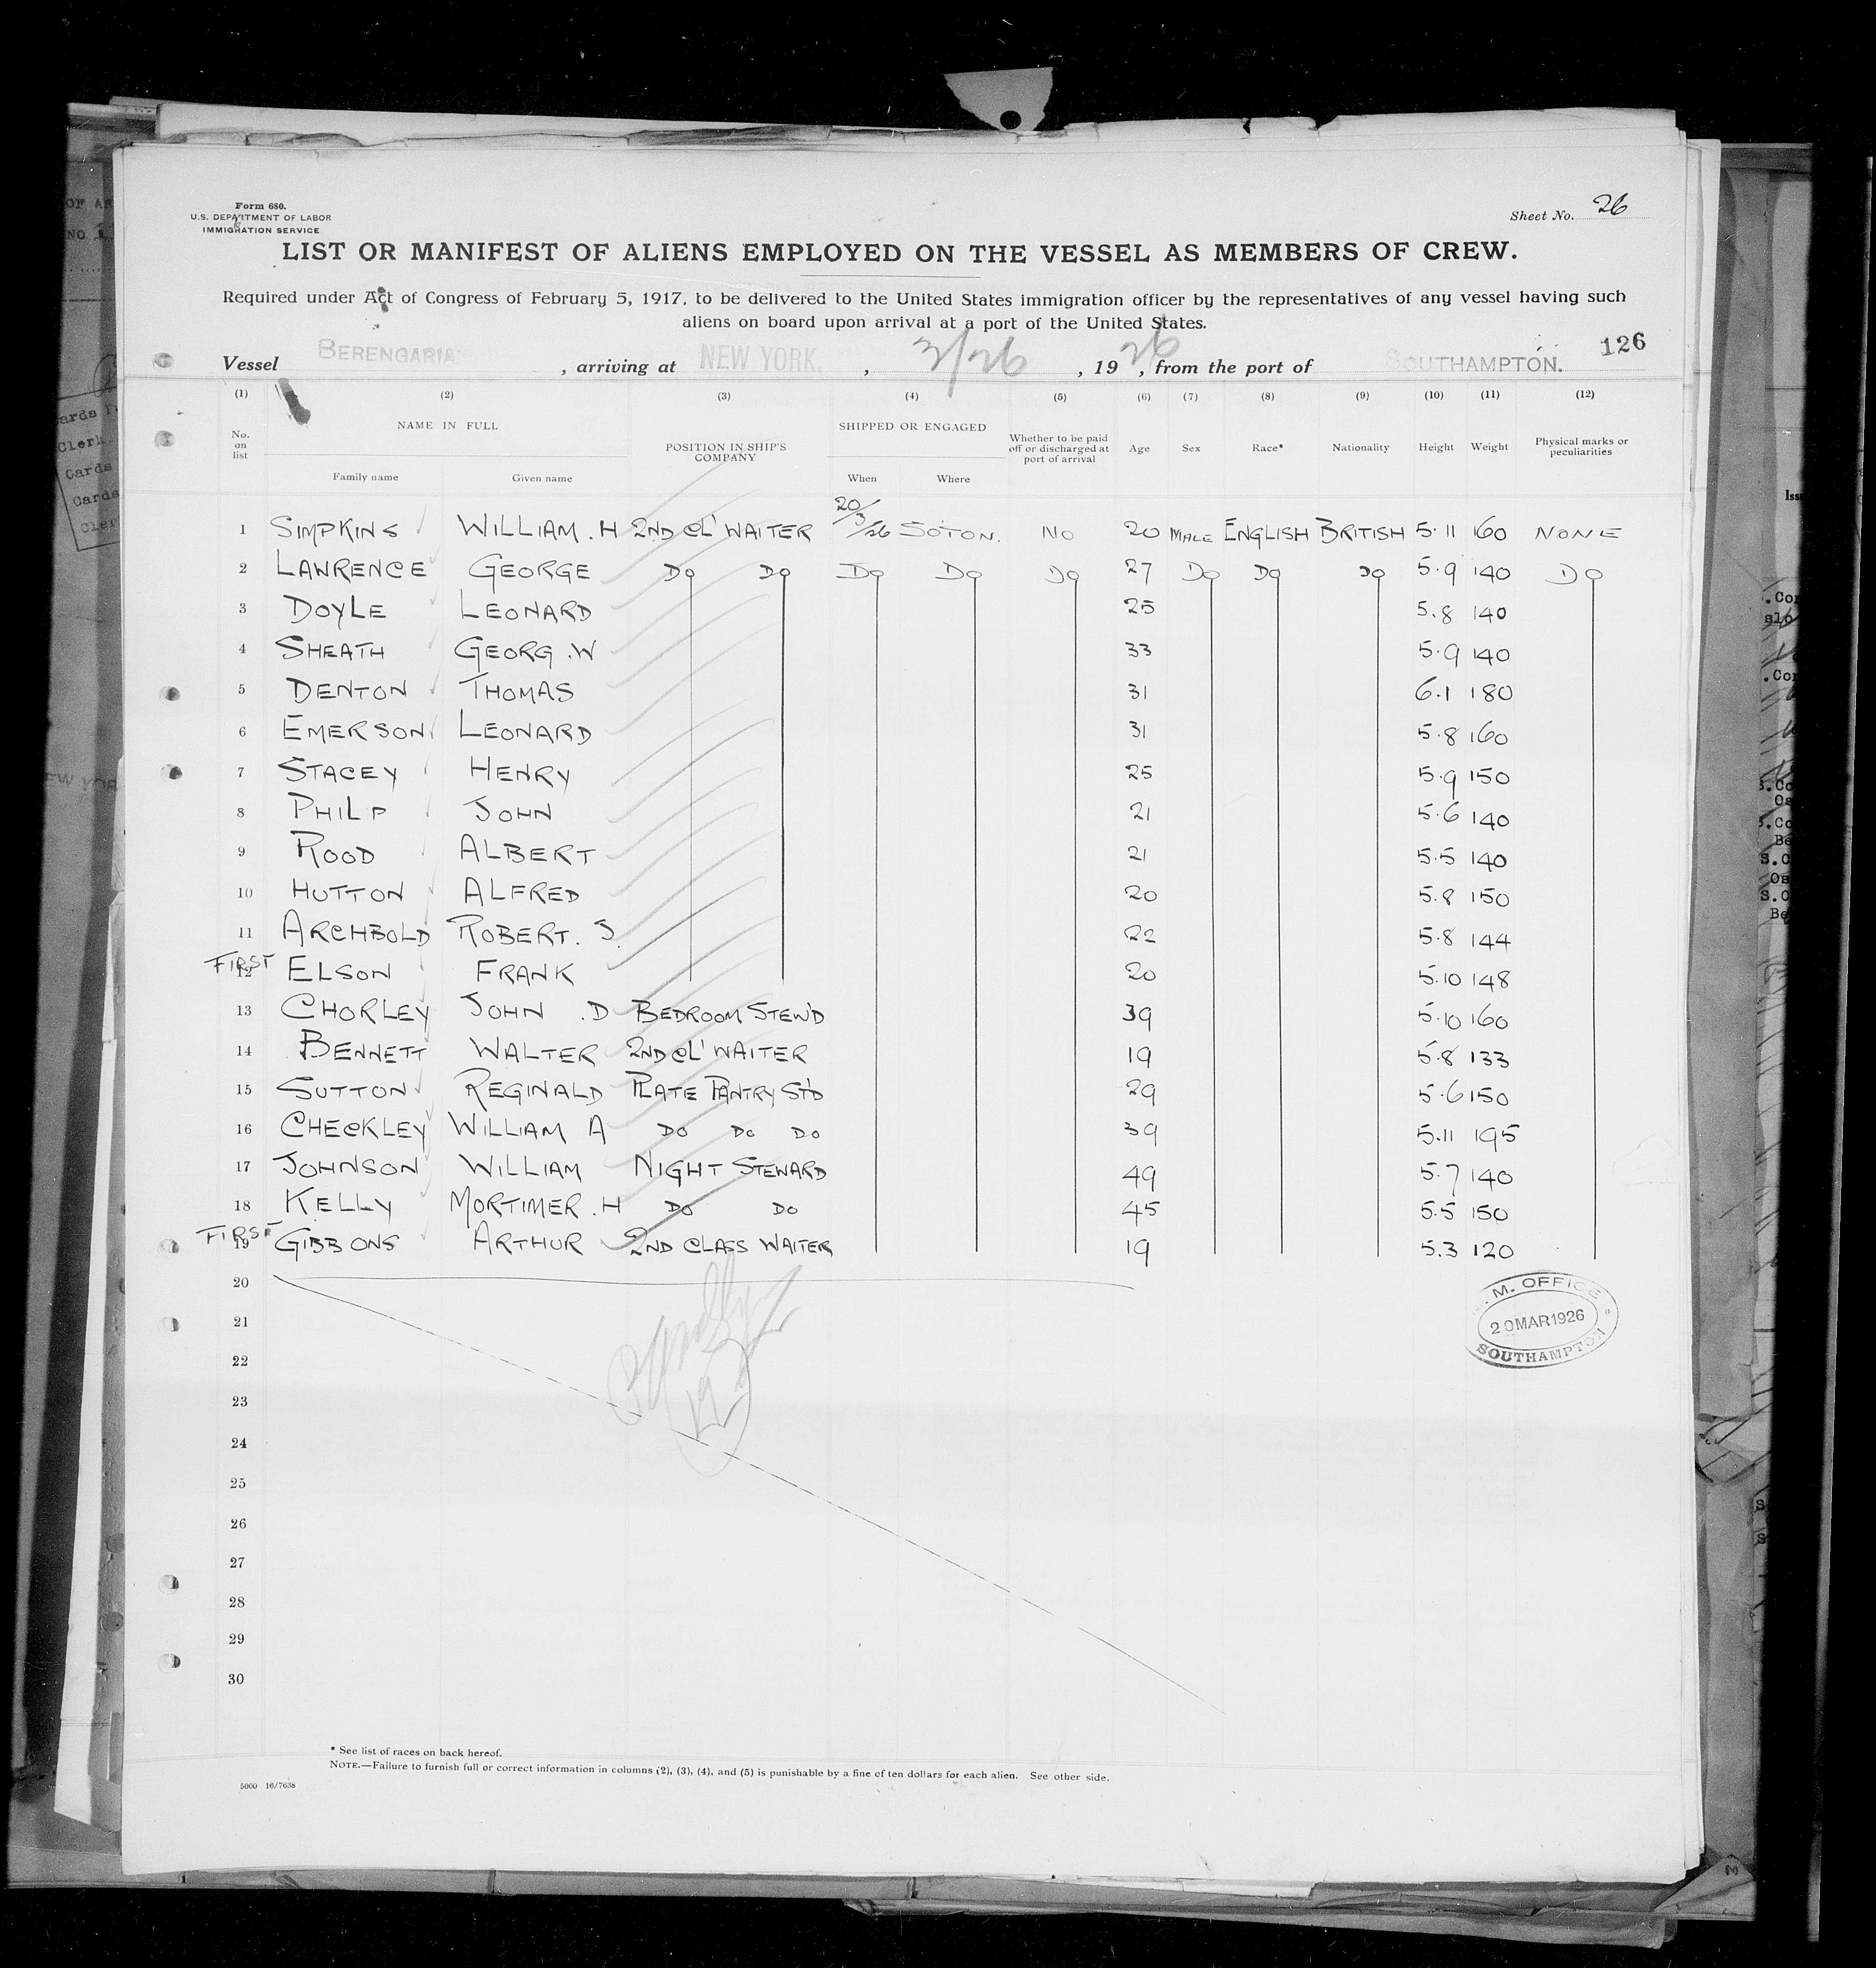 Form 680.
U.S. DEPARTMENT OF LABOR
IMMIGRATION SERVICE
Sheet No. 26
LIST OR MANIFEST OF ALIENS EMPLOYED ON THE VESSEL AS MEMBERS OF CREW.
Required under Act of Congress of February 5, 1917, to be delivered to the United States immigration officer by the representatives of any vessel having such
aliens on board upon arrival at a port of the United States.
126
Vessel BERENGARIA , arriving at NEW YORK. , 3/26 , 1926 , from the port of SOUTHAMPTON.
(1) (2) (3) (4) (5) (6) (7) (8) (9) (10) (11) (12)
No. on list NAME IN FULL Family name Given name POSITION IN SHIP'S COMPANY SHIPPED OR ENGAGED When Where Whether to be paid off or discharged at port of arrival Age Sex Race* Nationality Height Weight Physical marks or peculiarities
1 SIMPKINS WILLIAM.H 2ND CL' WAITER 20/3/26 SOTON. NO 20 MALE ENGLISH BRITISH 5.11 160 NONE
2 LAWRENCE GEORGE DO DO DO DO DO 27 DO DO DO 5.9 140 DO
3 DOYLE LEONARD 25 5.8 140
4 SHEATH GEORG.W 33 5.9 140
5 DENTON THOMAS 31 6.1 180
6 EMERSON LEONARD 31 5.8 160
7 STACEY HENRY 25 5.9 150
8 PHILP JOHN 21 5.6 140
9 ROOD ALBERT 21 5.5 140
10 HUTTON ALFRED 20 5.8 150
11 ARCHBOLD ROBERT. S. 22 5.8 144
FIRST 12 ELSON FRANK 20 5.10 148
13 CHORLEY JOHN .D BEDROOM STEW'D 39 5.10 160
14 BENNETT WALTER 2ND CL' WAITER 19 5.8 133
15 SUTTON REGINALD PLATE PANTRY ST'D 29 5.6 150
16 CHECKLEY WILLIAM A DO DO DO 39 5.11 195
17 JOHNSON WILLIAM NIGHT STEWARD 49 5.7 140
18 KELLY MORTIMER.H DO DO 45 5.5 150
FIRST 19 GIBBONS ARTHUR 2ND CLASS WAITER 19 5.3 120
20
21
22
23
24
25
26
27
28
29
30
19
M. OFFICE
20 MAR 1926
SOUTHAMPTON
* See list of races on back hereof.
NOTE.—Failure to furnish full or correct information in columns (2), (3), (4), and (5) is punishable by a fine of ten dollars for each alien. See other side.
5000 16/7638